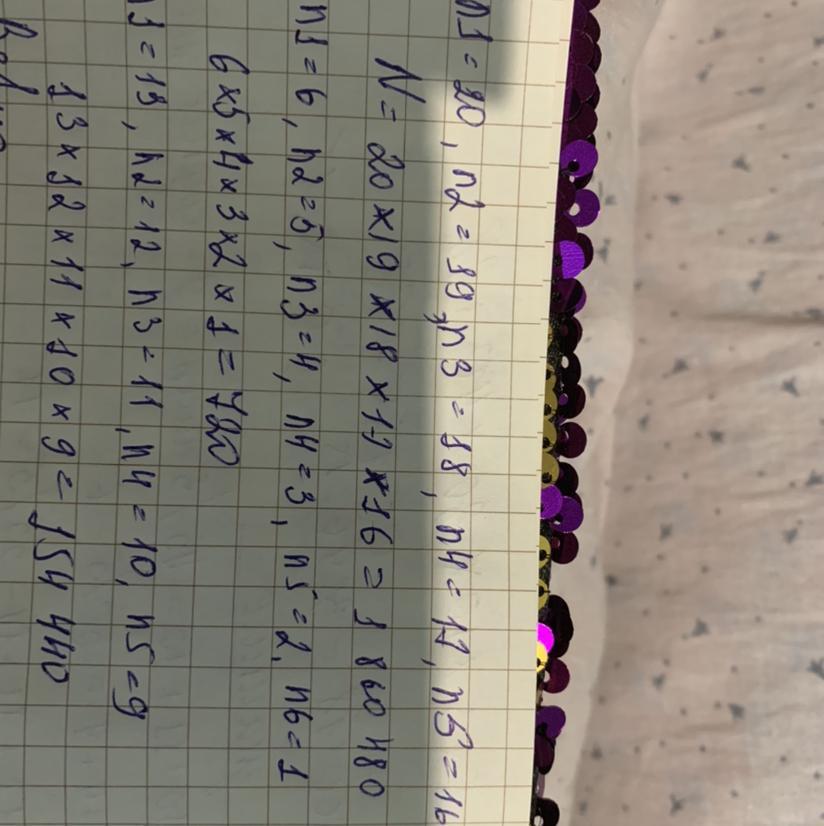 n1 = 20, n2 = 19, n3 = 18, n4 = 17, n5 = 16
N = 20 × 19 × 18 × 17 × 16 = 1 860 480
n1 = 6, n2 = 5, n3 = 4, n4 = 3, n5 = 2, n6 = 1
6 × 5 × 4 × 3 × 2 × 1 = 720
n1 = 13, n2 = 12, n3 = 11, n4 = 10, n5 = 9
13 × 12 × 11 × 10 × 9 = 154 440